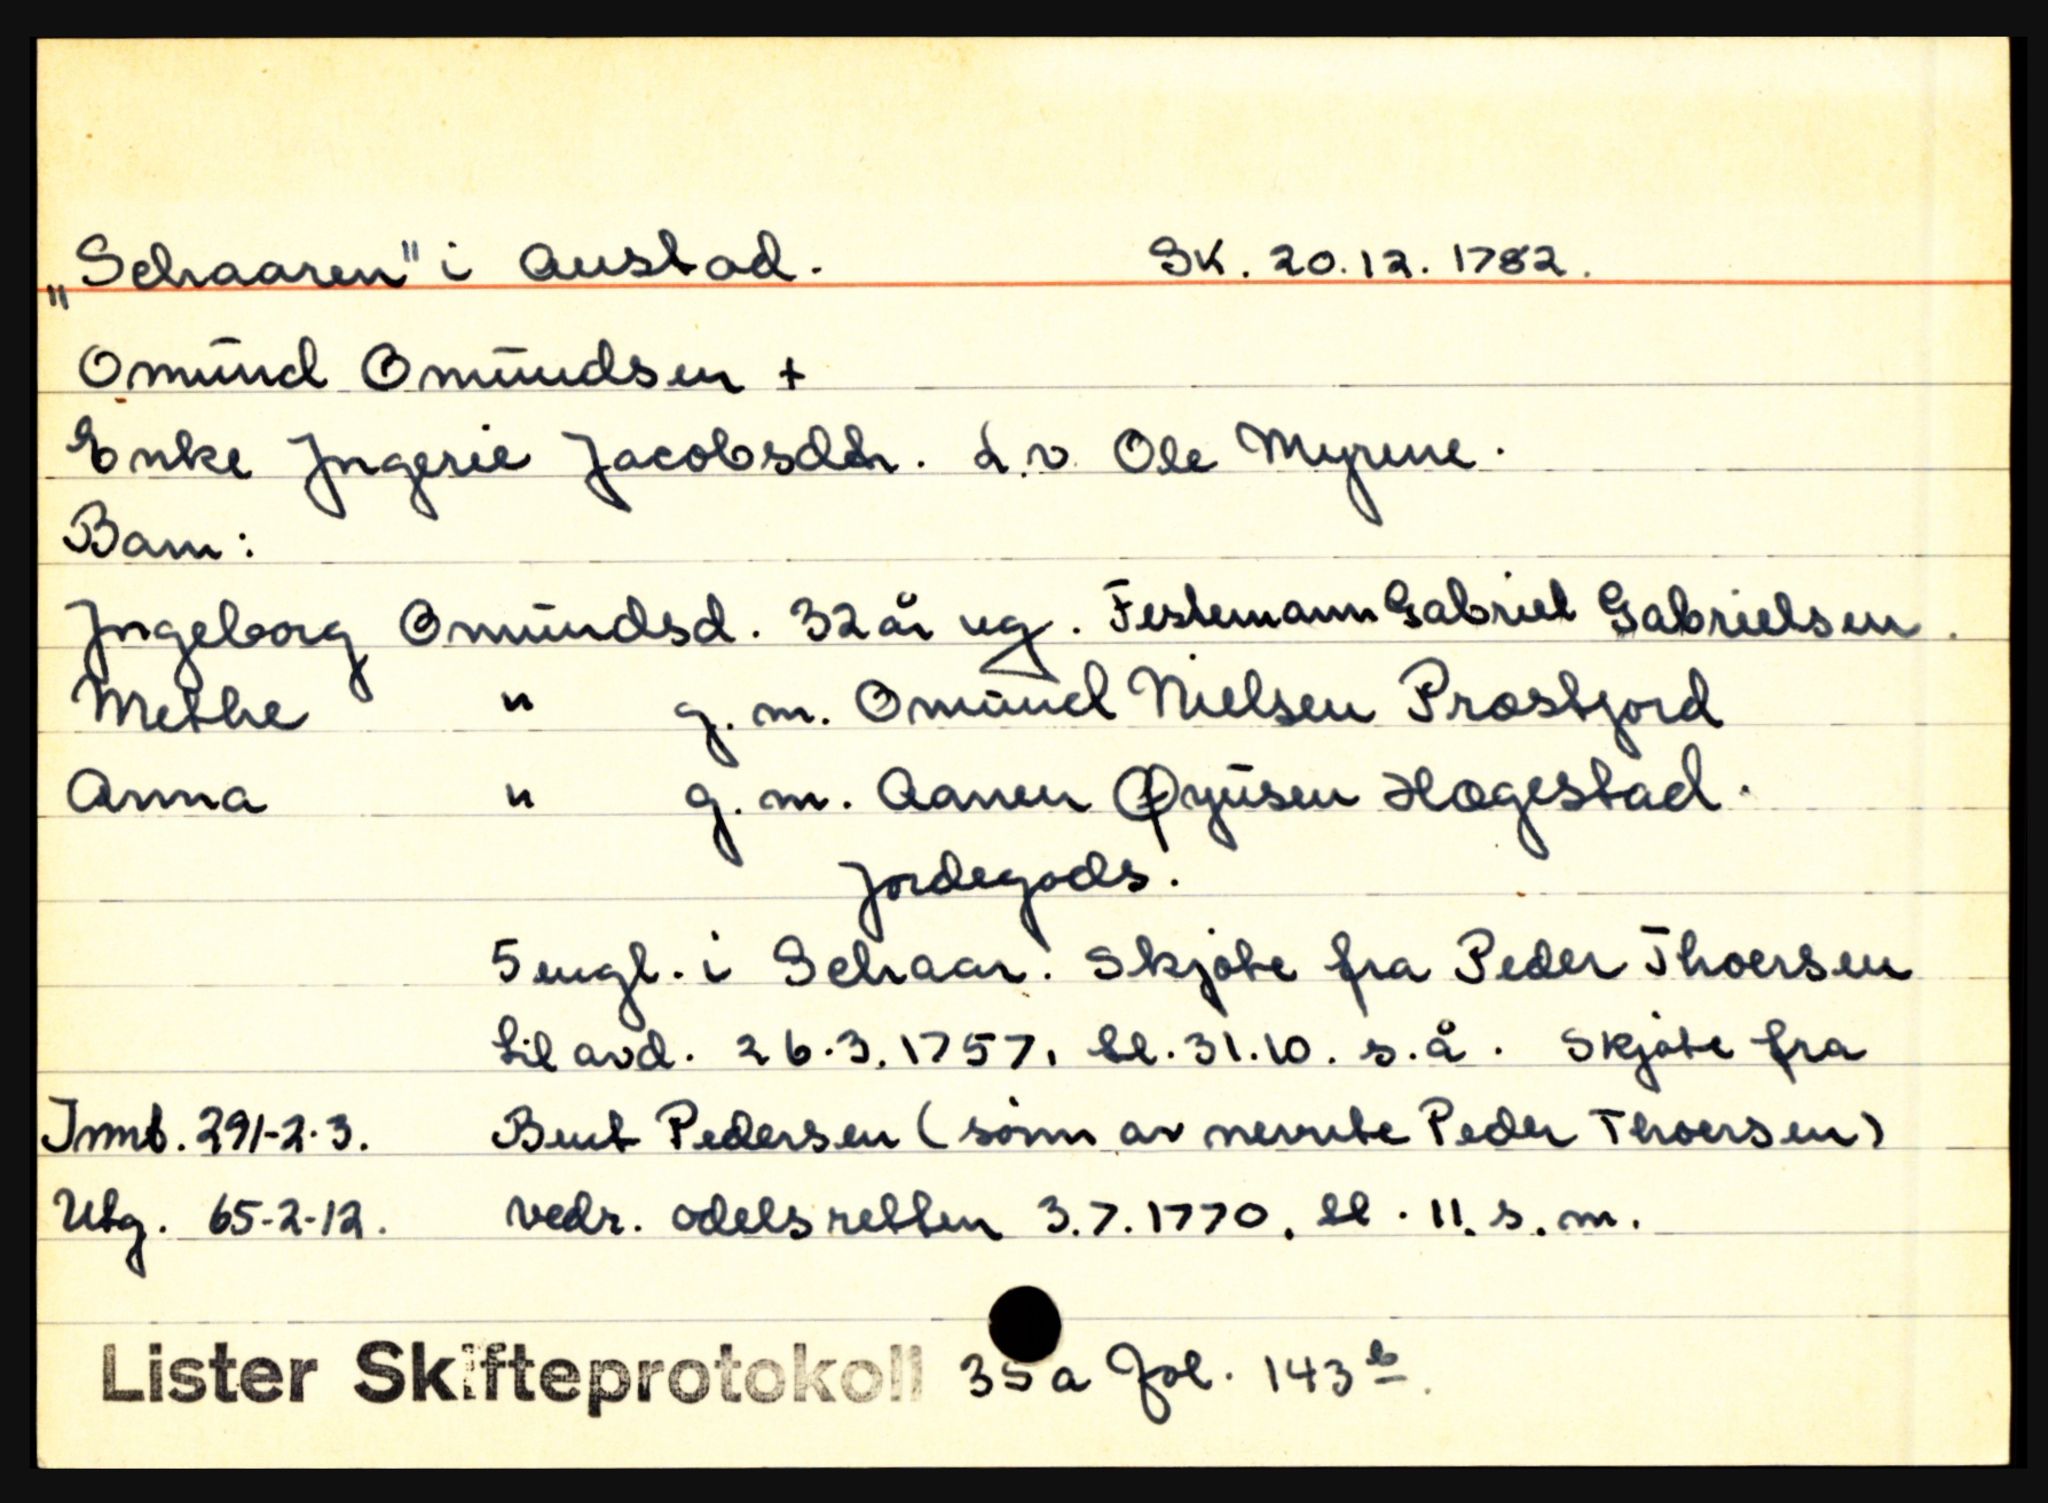 „Schaaren" i Austad. SK. 20.12.1782.
Omund Omundsen +
Enke Jngerie Jacobsdtr. L.v. Ole Myrene.
Barn:
Jngeborg Omundsd. 32 år ug. Festemann Gabriel Gabrielsen.
Methe " g.m. Omund Nielsen Præstjord
Anna " g.m. Aanen Øyusen Hægestad.
Jordegods.
5 engl. i Schaar. Skjøte fra Peder Thoersen
til avd. 26.3.1757, tl. 31.10. s.å. Skjøte fra
Innt. 291-2-3. Bent Pedersen (sønn av nevnte Peder Thoersen)
Utg. 65-2-12. vedr. odelsretten 3.7.1770, tl. 11. s.m.
Lister Skifteprotokoll 35a Fol. 143 b.